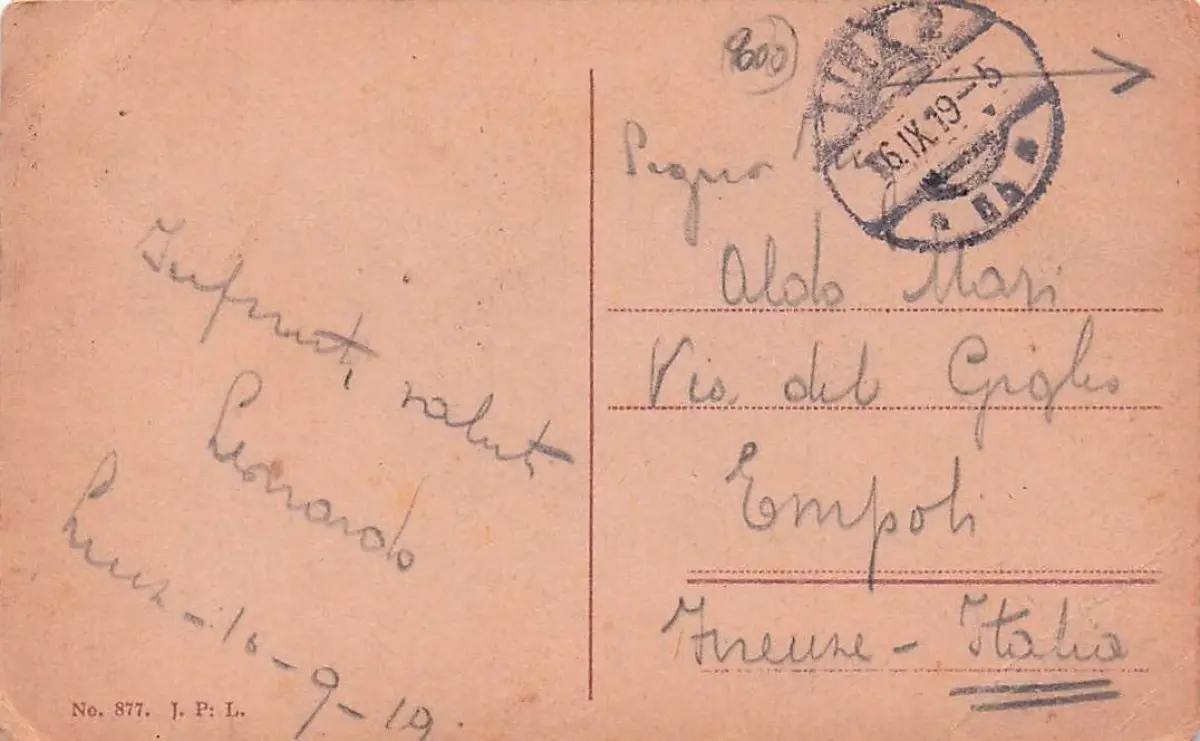 Infiniti saluti
Leonardo
Linz - 16 - 9 - 19.
No. 877. J. P: L.
(800)
LINZ 2
6.IX.19-5
* 5b *
Aldo Masi
Via del Giglio
Empoli
Firenze - Italia